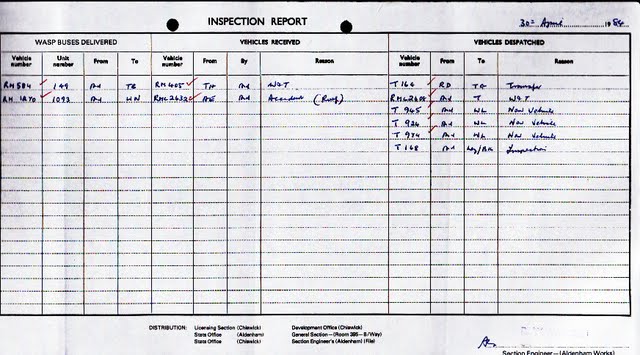 INSPECTION REPORT
30th April 1984
WASP BUSES DELIVERED VEHICLES RECEIVED VEHICLES DISPATCHED
Vehicle number Unit number From To Vehicle number From By Reason Vehicle number From To Reason
RM 584 149 Ad TB RM 405 TH Ad W&T T 164 RD TB Transfer
RM 1270 1093 Ad HN RML 2632 AE Ad Accident (Roof) Ad T W&T
T 945 Ad WL New Vehicle
T 924 Ad WL New Vehicle
T 974 Ad WL New Vehicle
T 168 Ad Inspection
DISTRIBUTION: Licensing Section (Chiswick) Development Office (Chiswick)
State Office (Aldenham) General Section—(Room 395—B/Way)
State Office (Chiswick) Section Engineer's (Aldenham) (File)
Section Engineer—(Aldenham Works)